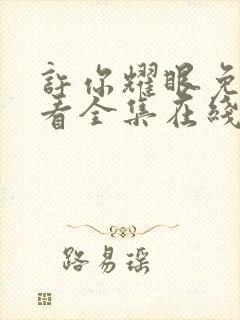 許你耀眼免
看全集在綫
路易瑶